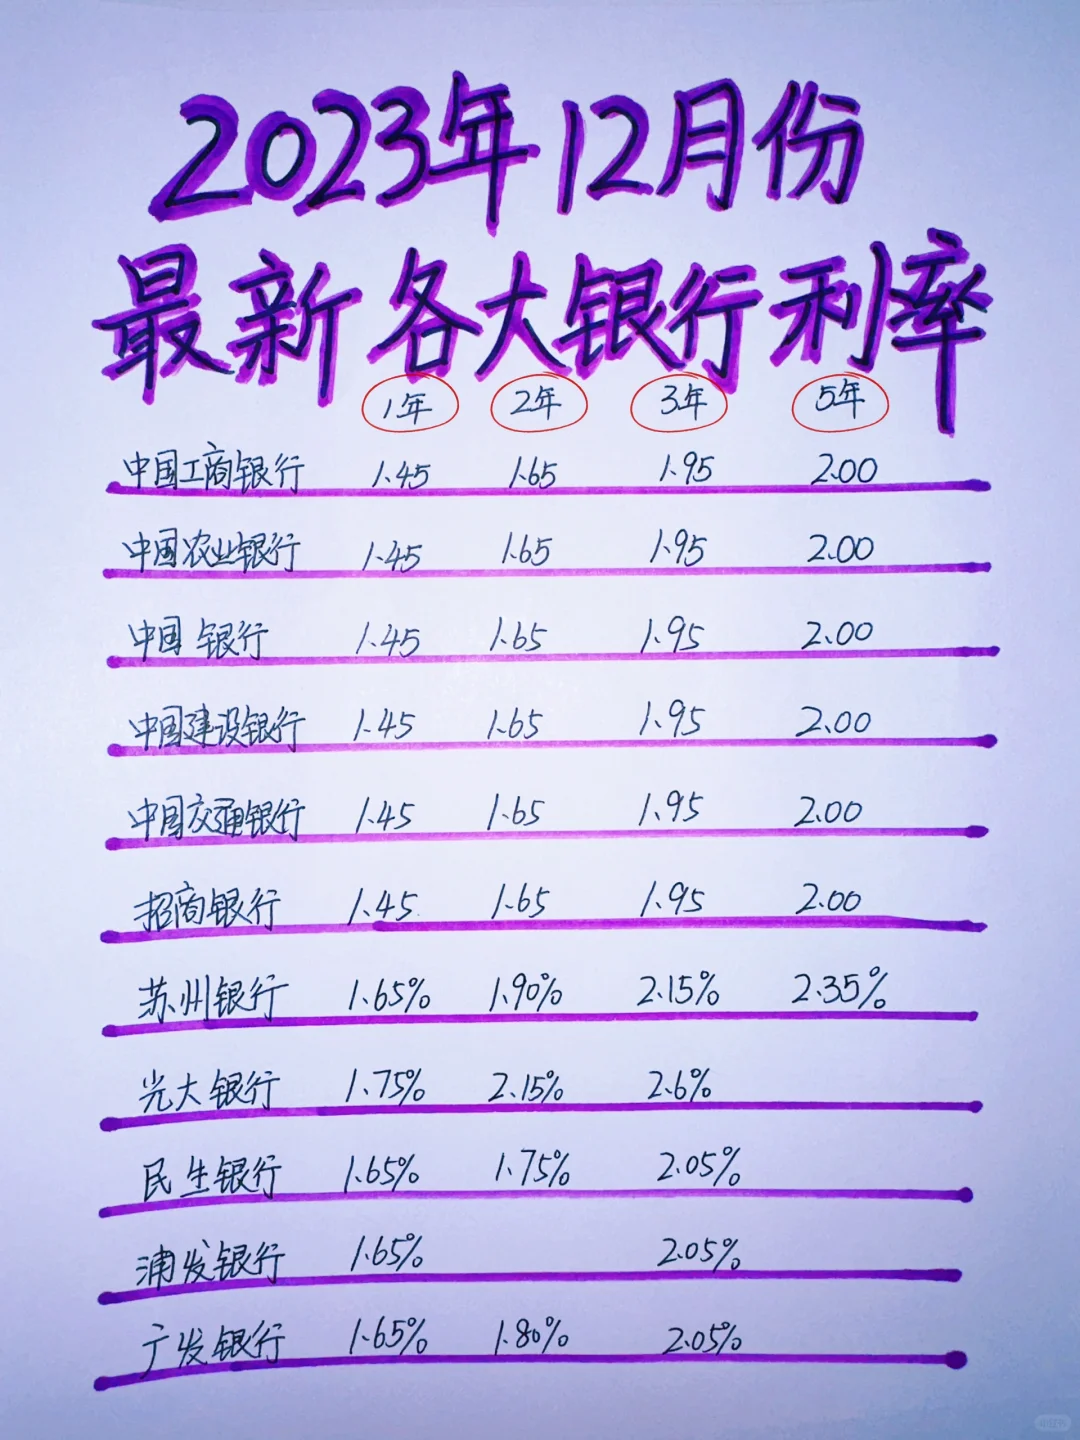 2023年12月份
最新各大银行利率
1年 2年 3年 5年
中国工商银行 1.45 1.65 1.95 2.00
中国农业银行 1.45 1.65 1.95 2.00
中国银行 1.45 1.65 1.95 2.00
中国建设银行 1.45 1.65 1.95 2.00
中国交通银行 1.45 1.65 1.95 2.00
招商银行 1.45 1.65 1.95 2.00
苏州银行 1.65% 1.90% 2.15% 2.35%
光大银行 1.75% 2.15% 2.6%
民生银行 1.65% 1.75% 2.05%
浦发银行 1.65% 2.05%
广发银行 1.65% 1.80% 2.05%